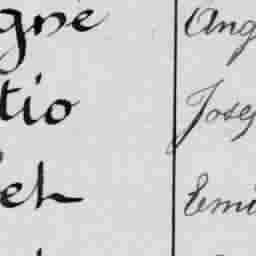 gne Ang
tio Josep
ieh Emi